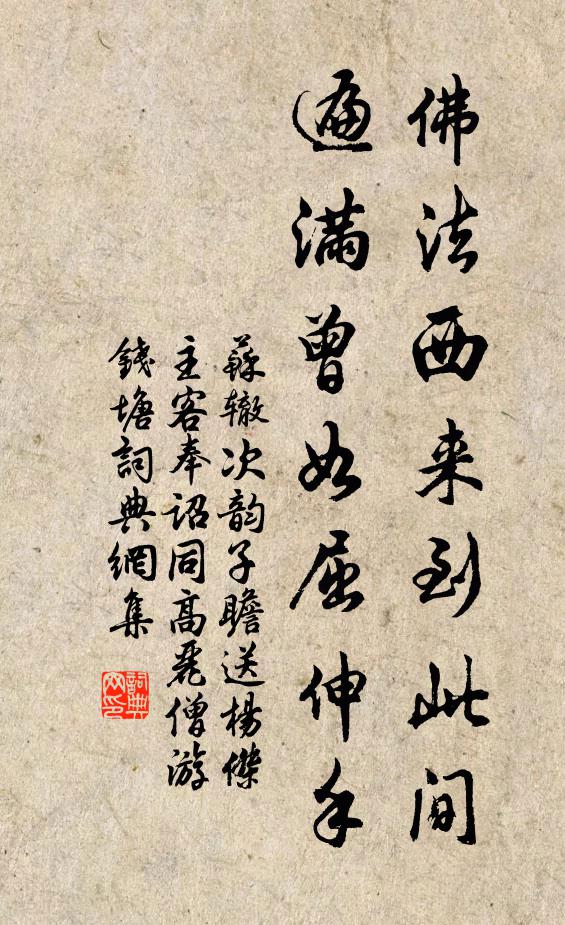 佛法西来到此间
遍满曾如屈伸手
蘇辙次韵子瞻送楊傑
主客奉诏同高丽僧游
錢塘詞典網集
詞典网印